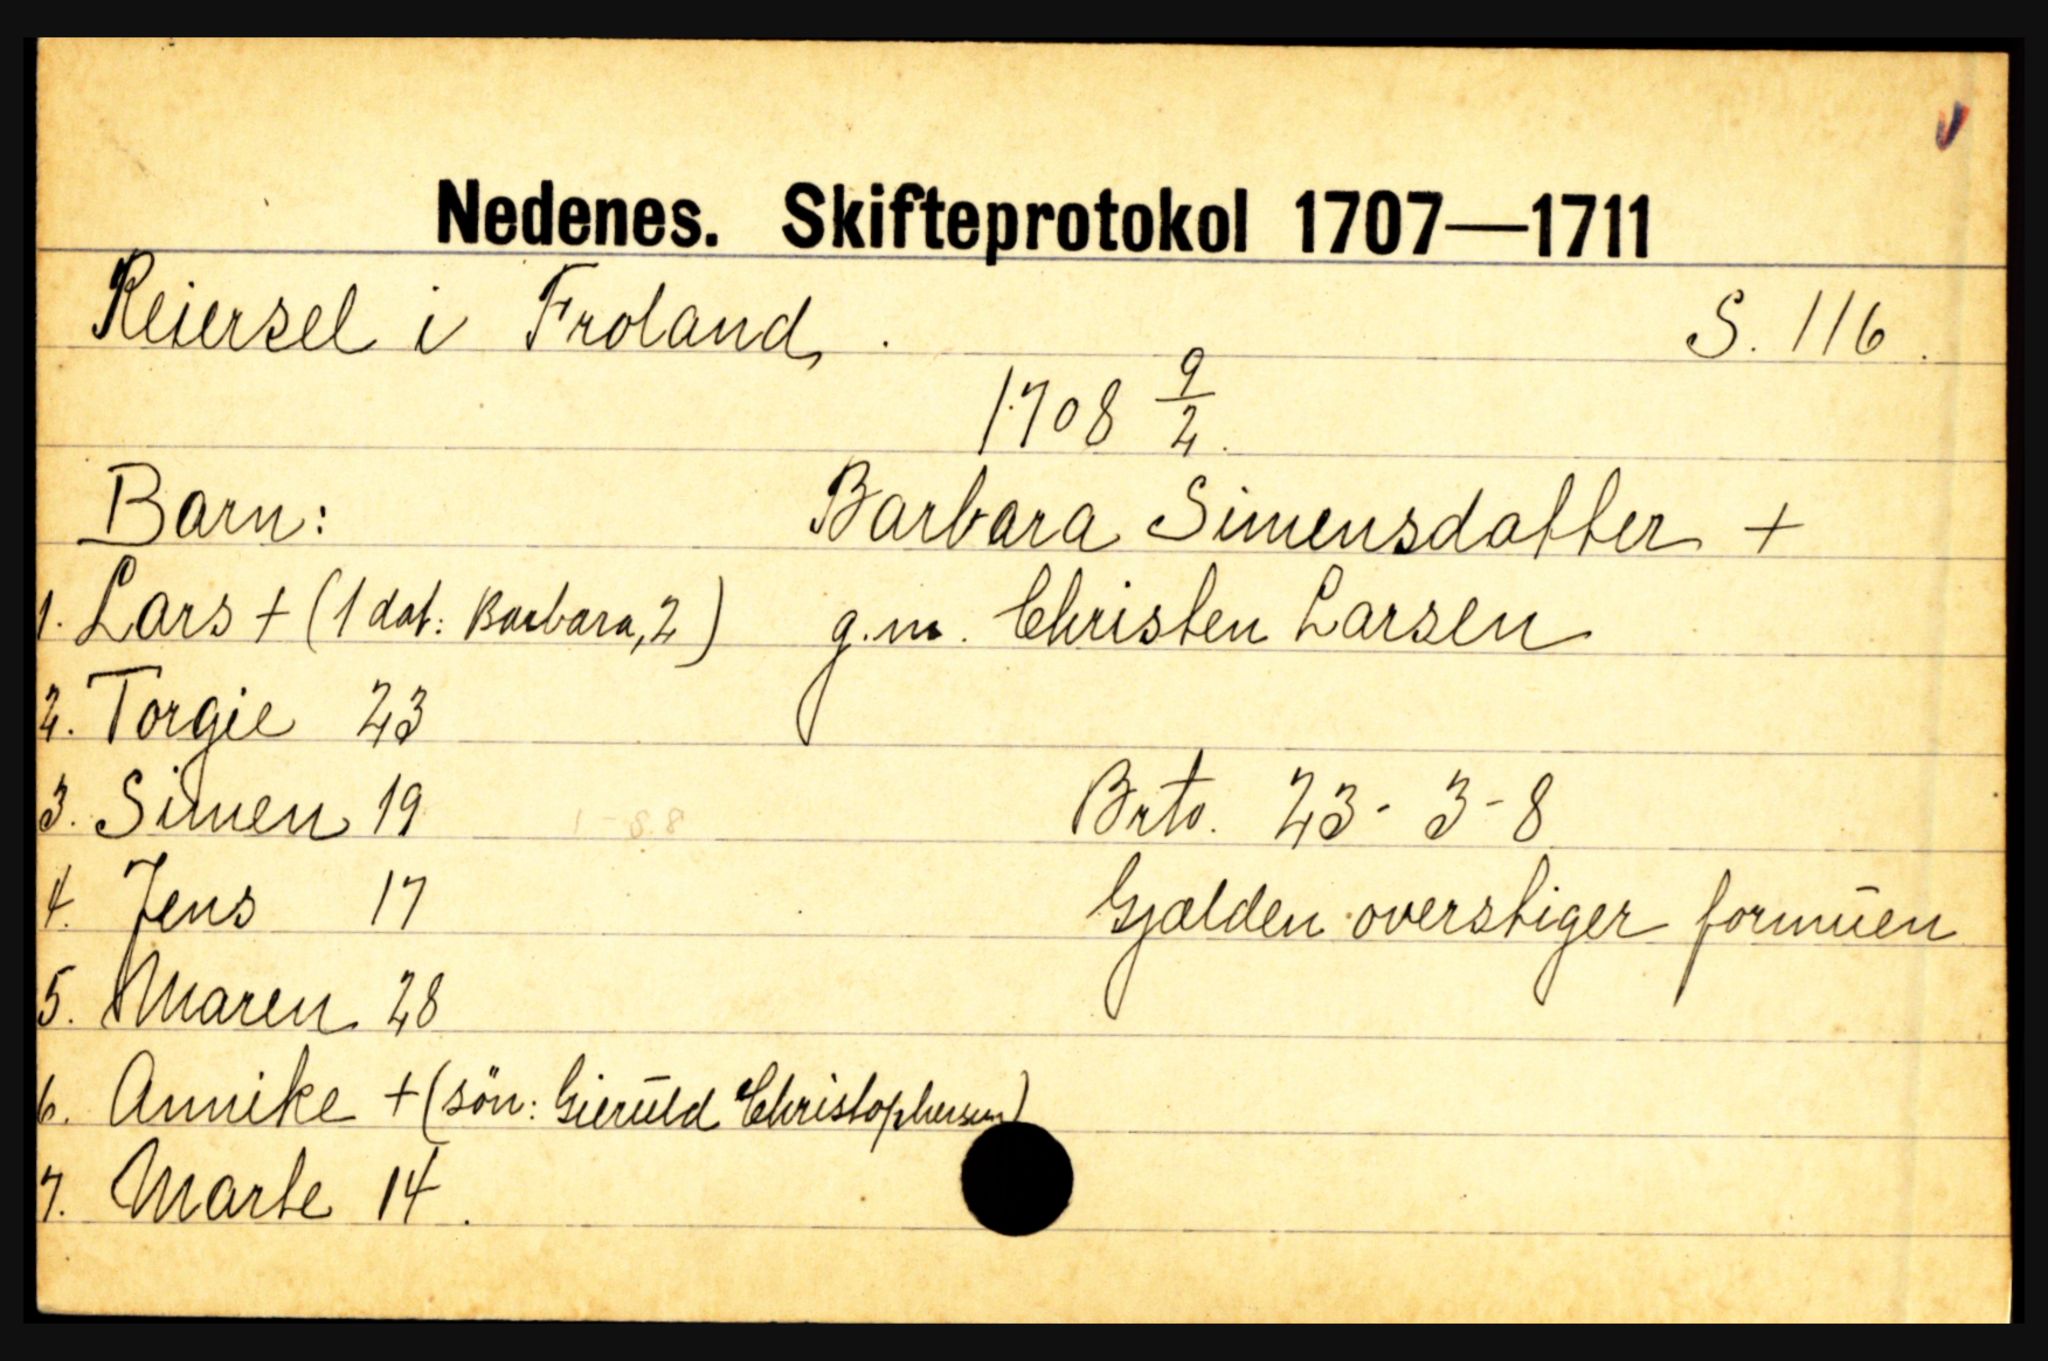 Nedenes. Skifteprotokol 1707—1711
Reiersel i Froland. S. 116.
1708 9/2.
Barn: Barbara Simensdatter +
1. Lars + (1 dat: Barbara, 2) g.m. Christen Larsen
2. Torgie 23
3. Simen 19 Brto. 23 - 3 - 8
4. Jens 17 Gjælden overstiger formŭen
5. Maren 28
6. Annike + (sön: Gierŭld Christophersen)
7. Marte 14.